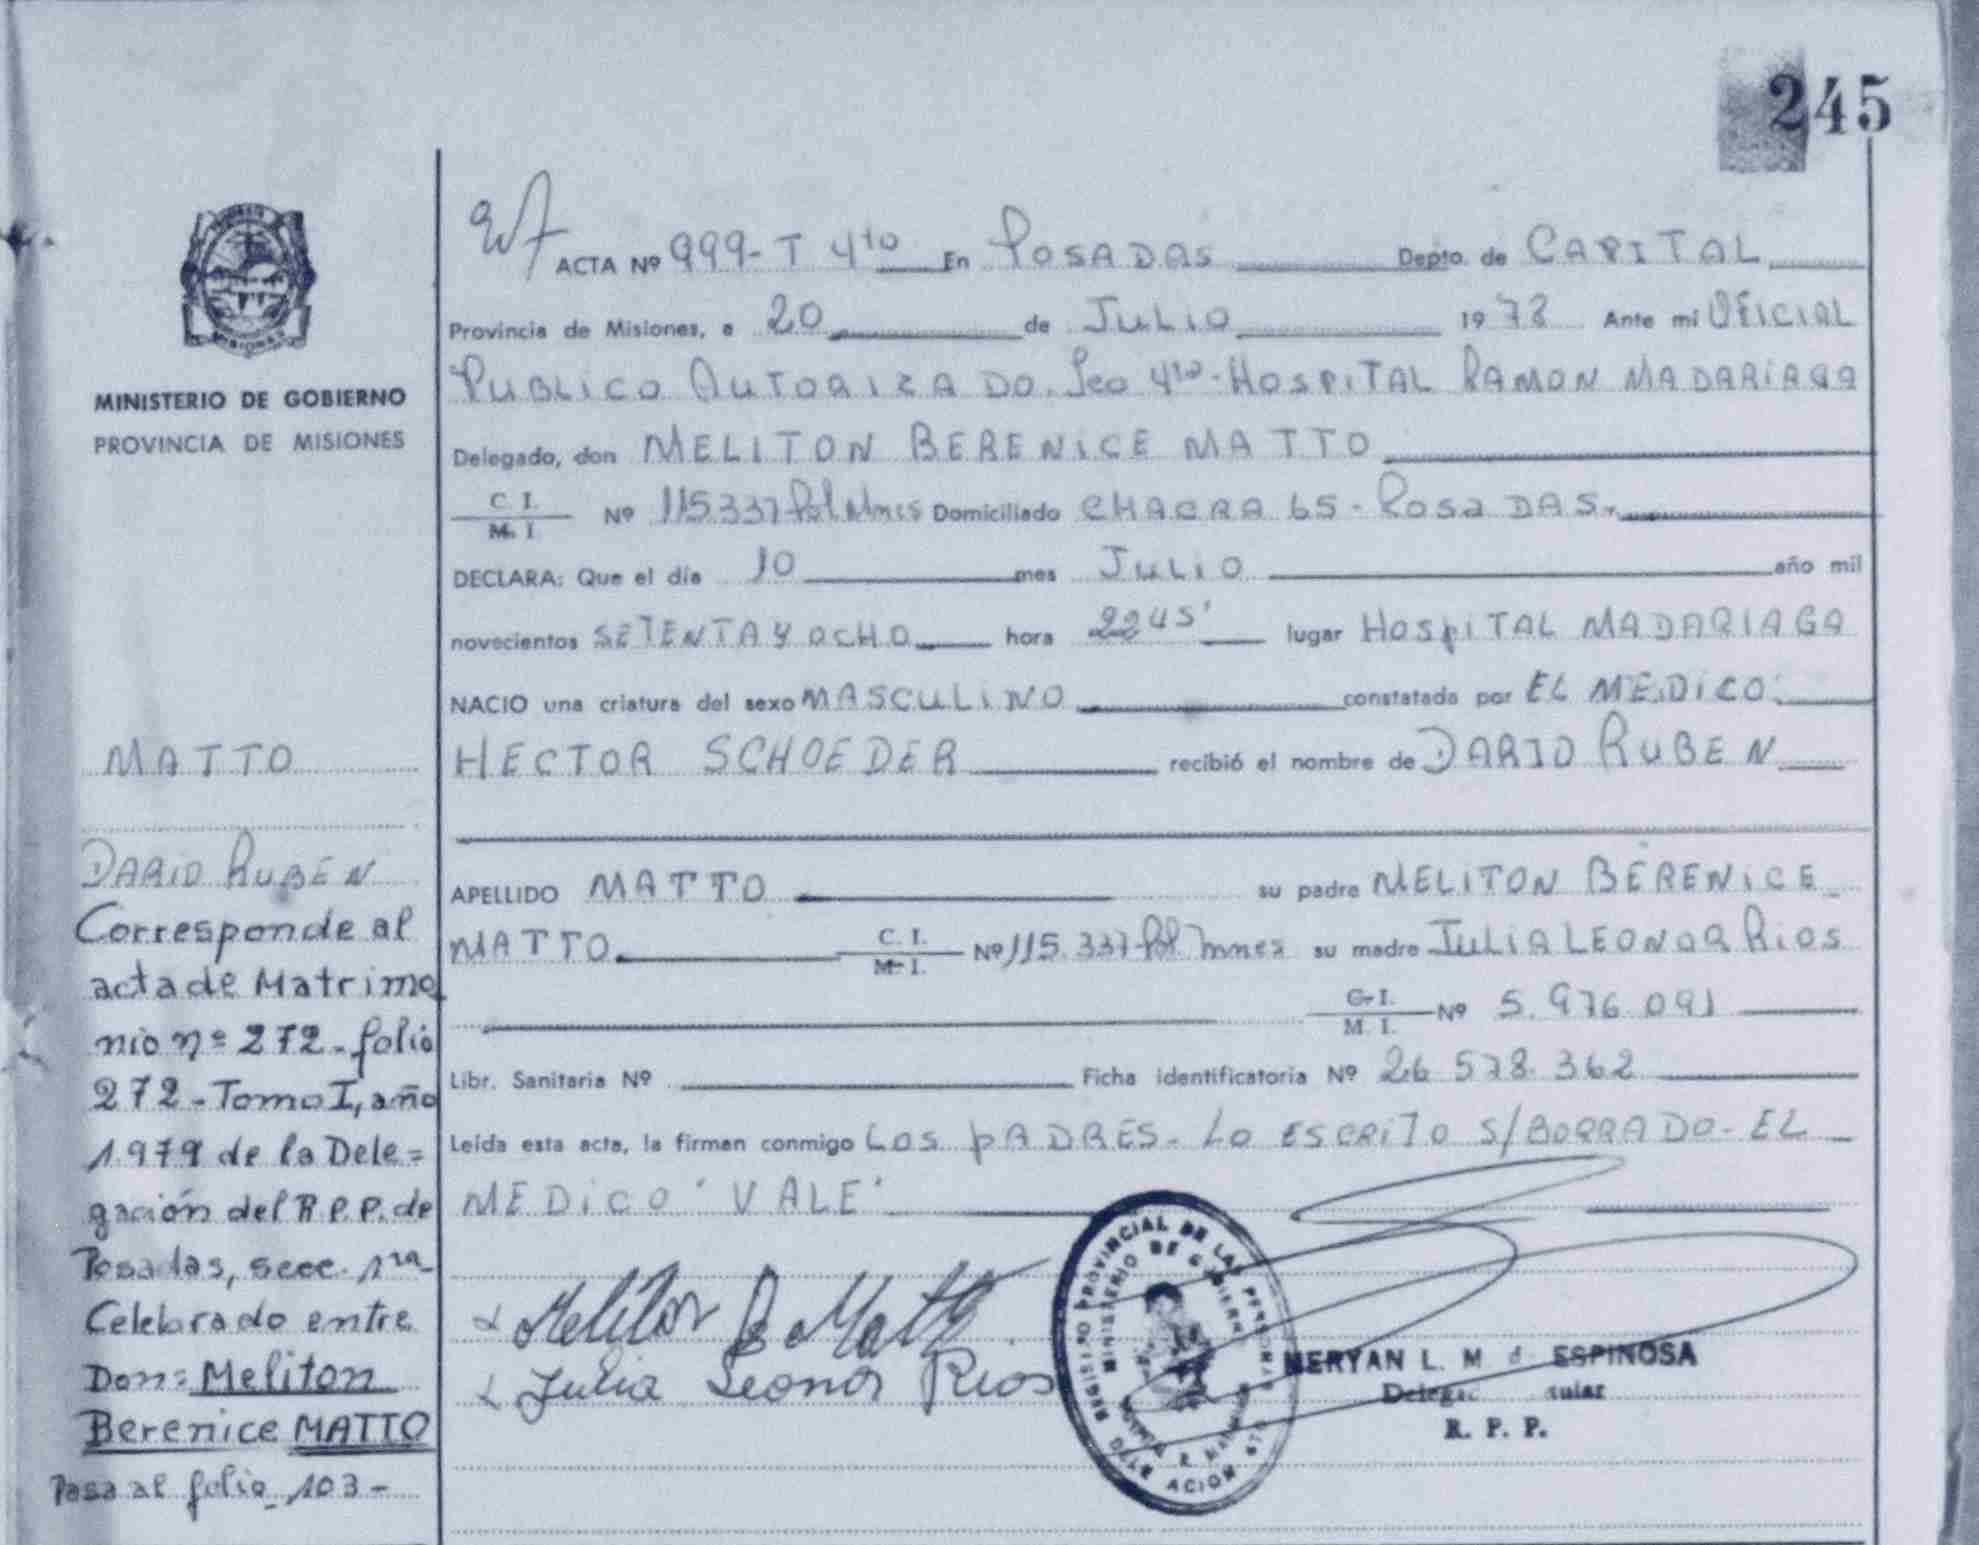 245
ACTA Nº 999-T 4to En POSADAS Depto. de CAPITAL
Provincia de Misiones, a 20 de JULIO 1978 Ante mi OFICIAL
PUBLICO AUTORIZADO. Sec 4to-HOSPITAL RAMON MADARIAGA
Delegado, don MELITON BERENICE MATTO
C. I.
M. I. Nº 115.337 Pol Mnes Domiciliado CHACRA 65-POSADAS.
DECLARA: Que el día 10 mes JULIO año mil
novecientos SETENTA Y OCHO hora 2245' lugar HOSPITAL MADARIAGA
NACIO una criatura del sexo MASCULINO constatada por EL MEDICO:
HECTOR SCHOEDER recibió el nombre de DARIO RUBEN
APELLIDO MATTO su padre MELITON BERENICE
MATTO C. I.
M. I. Nº 115.337 Pol. Mnes su madre JULIA LEONOR RIOS
C. I.
M. I. Nº 5.976.091
Libr. Sanitaria Nº Ficha identificatoria Nº 26 578.362
Leída esta acta, la firman conmigo LOS PADRES- LO ESCRITO S/BORRADO- EL
MEDICO 'VALE'
Meliton B Matto
Julia Leonor Rios
REGISTRO PROVINCIAL DE LAS PERSONAS
MINISTERIO DE GOBIERNO
MERYAN L. M. d ESPINOSA
R. P. P.
MISIONES
MINISTERIO DE GOBIERNO
PROVINCIA DE MISIONES
MATTO
DARIO RUBEN
Corresponde al
acta de Matrimo
nio nº 272-folio
272-Tomo I, año
1979 de la Dele=
gación del R.P.P. de
Posadas, secc. 1ra-
Celebrado entre
Don= Meliton
Berenice MATTO
Pasa al folio 103-